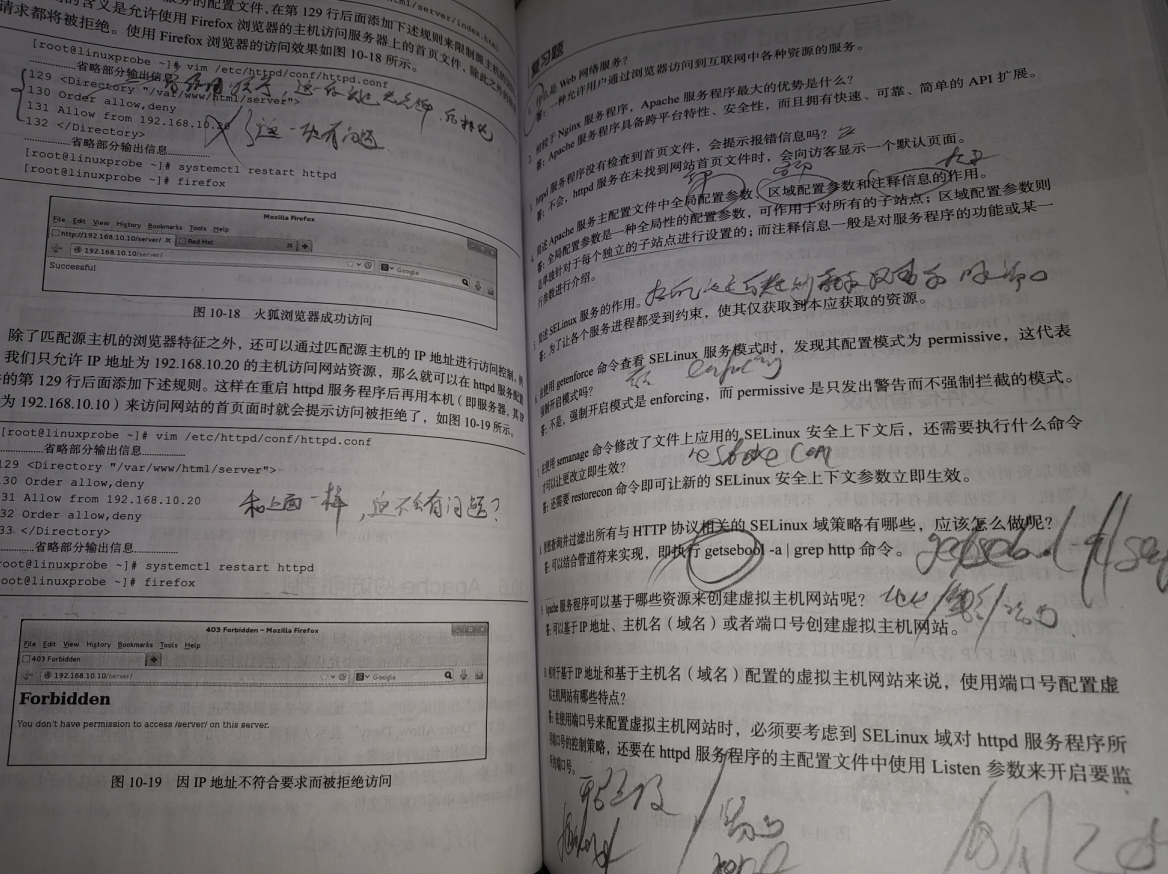 html/server/index.html
务的配置文件,在第 129 行后面添加下述规则来限制源主机的
的含义是允许使用 Firefox 浏览器的主机访问服务器上的首页文件,除此之外的
请求都将被拒绝。使用 Firefox 浏览器的访问效果如图 10-18 所示。
[root@linuxprobe ~]# vim /etc/httpd/conf/httpd.conf
省略部分输出信息
129 <Directory "/var/www/html/server">
130 Order allow,deny
131 Allow from 192.168.10.20
这一块有问题
132 </Directory>
省略部分输出信息
[root@linuxprobe ~]# systemctl restart httpd
[root@linuxprobe ~]# firefox
Mozilla Firefox
File Edit View History Bookmarks Tools Help
http://192.168.10.10/server/ Red Hat
192.168.10.10/server/ Google
Successful
图 10-18 火狐浏览器成功访问
除了匹配源主机的浏览器特征之外,还可以通过匹配源主机的 IP 地址进行访问控制。
我们只允许 IP 地址为 192.168.10.20 的主机访问网站资源,那么就可以在 httpd 服务配置
的第 129 行后面添加下述规则。这样在重启 httpd 服务程序后再用本机(即服务器,其 IP
为 192.168.10.10)来访问网站的首页面时就会提示访问被拒绝了,如图 10-19 所示。
[root@linuxprobe ~]# vim /etc/httpd/conf/httpd.conf
省略部分输出信息
129 <Directory "/var/www/html/server">
30 Order allow,deny
31 Allow from 192.168.10.20
和上面一样,应不会有问题?
32 Order allow,deny
33 </Directory>
省略部分输出信息
root@linuxprobe ~]# systemctl restart httpd
root@linuxprobe ~]# firefox
403 Forbidden - Mozilla Firefox
File Edit View History Bookmarks Tools Help
403 Forbidden
192.168.10.10/server/ Google
Forbidden
You don't have permission to access /server/ on this server.
图 10-19 因 IP 地址不符合要求而被拒绝访问
复习题
什么是 Web 网络服务?
答:一种允许用户通过浏览器访问到互联网中各种资源的服务。
2. 相较于 Nginx 服务程序,Apache 服务程序最大的优势是什么?
答:Apache 服务程序具备跨平台特性、安全性,而且拥有快速、可靠、简单的 API 扩展。
3. httpd 服务程序没有检查到首页文件,会提示报错信息吗?
答:不会,httpd 服务在未找到网站首页文件时,会向访客显示一个默认页面。
4. 简述 Apache 服务主配置文件中全局配置参数、区域配置参数和注释信息的作用。
答:全局配置参数是一种全局性的配置参数,可作用于对所有的子站点;区域配置参数则
是单独针对于每个独立的子站点进行设置的;而注释信息一般是对服务程序的功能或某一
行参数进行介绍。
5. 简述 SELinux 服务的作用。
答:为了让各个服务进程都受到约束,使其仅获取到本应获取的资源。
在使用 getenforce 命令查看 SELinux 服务模式时,发现其配置模式为 permissive,这代表
强制开启模式吗?
enforcing
答:不是,强制开启模式是 enforcing,而 permissive 是只发出警告而不强制拦截的模式。
7. 在使用 semanage 命令修改了文件上应用的 SELinux 安全上下文后,还需要执行什么命令
才可以让更改立即生效?
答:还需要 restorecon 命令即可让新的 SELinux 安全上下文参数立即生效。
8. 要想查询并过滤出所有与 HTTP 协议相关的 SELinux 域策略有哪些,应该怎么做呢?
答:可以结合管道符来实现,即执行 getsebool -a | grep http 命令。
9. Apache 服务程序可以基于哪些资源来创建虚拟主机网站呢?
答:可以基于 IP 地址、主机名(域名)或者端口号创建虚拟主机网站。
相对于基于 IP 地址和基于主机名(域名)配置的虚拟主机网站来说,使用端口号配置虚
拟主机网站有哪些特点?
答:在使用端口号来配置虚拟主机网站时,必须要考虑到 SELinux 域对 httpd 服务程序所
用端口号的控制策略,还要在 httpd 服务程序的主配置文件中使用 Listen 参数来开启要监
听的端口号。